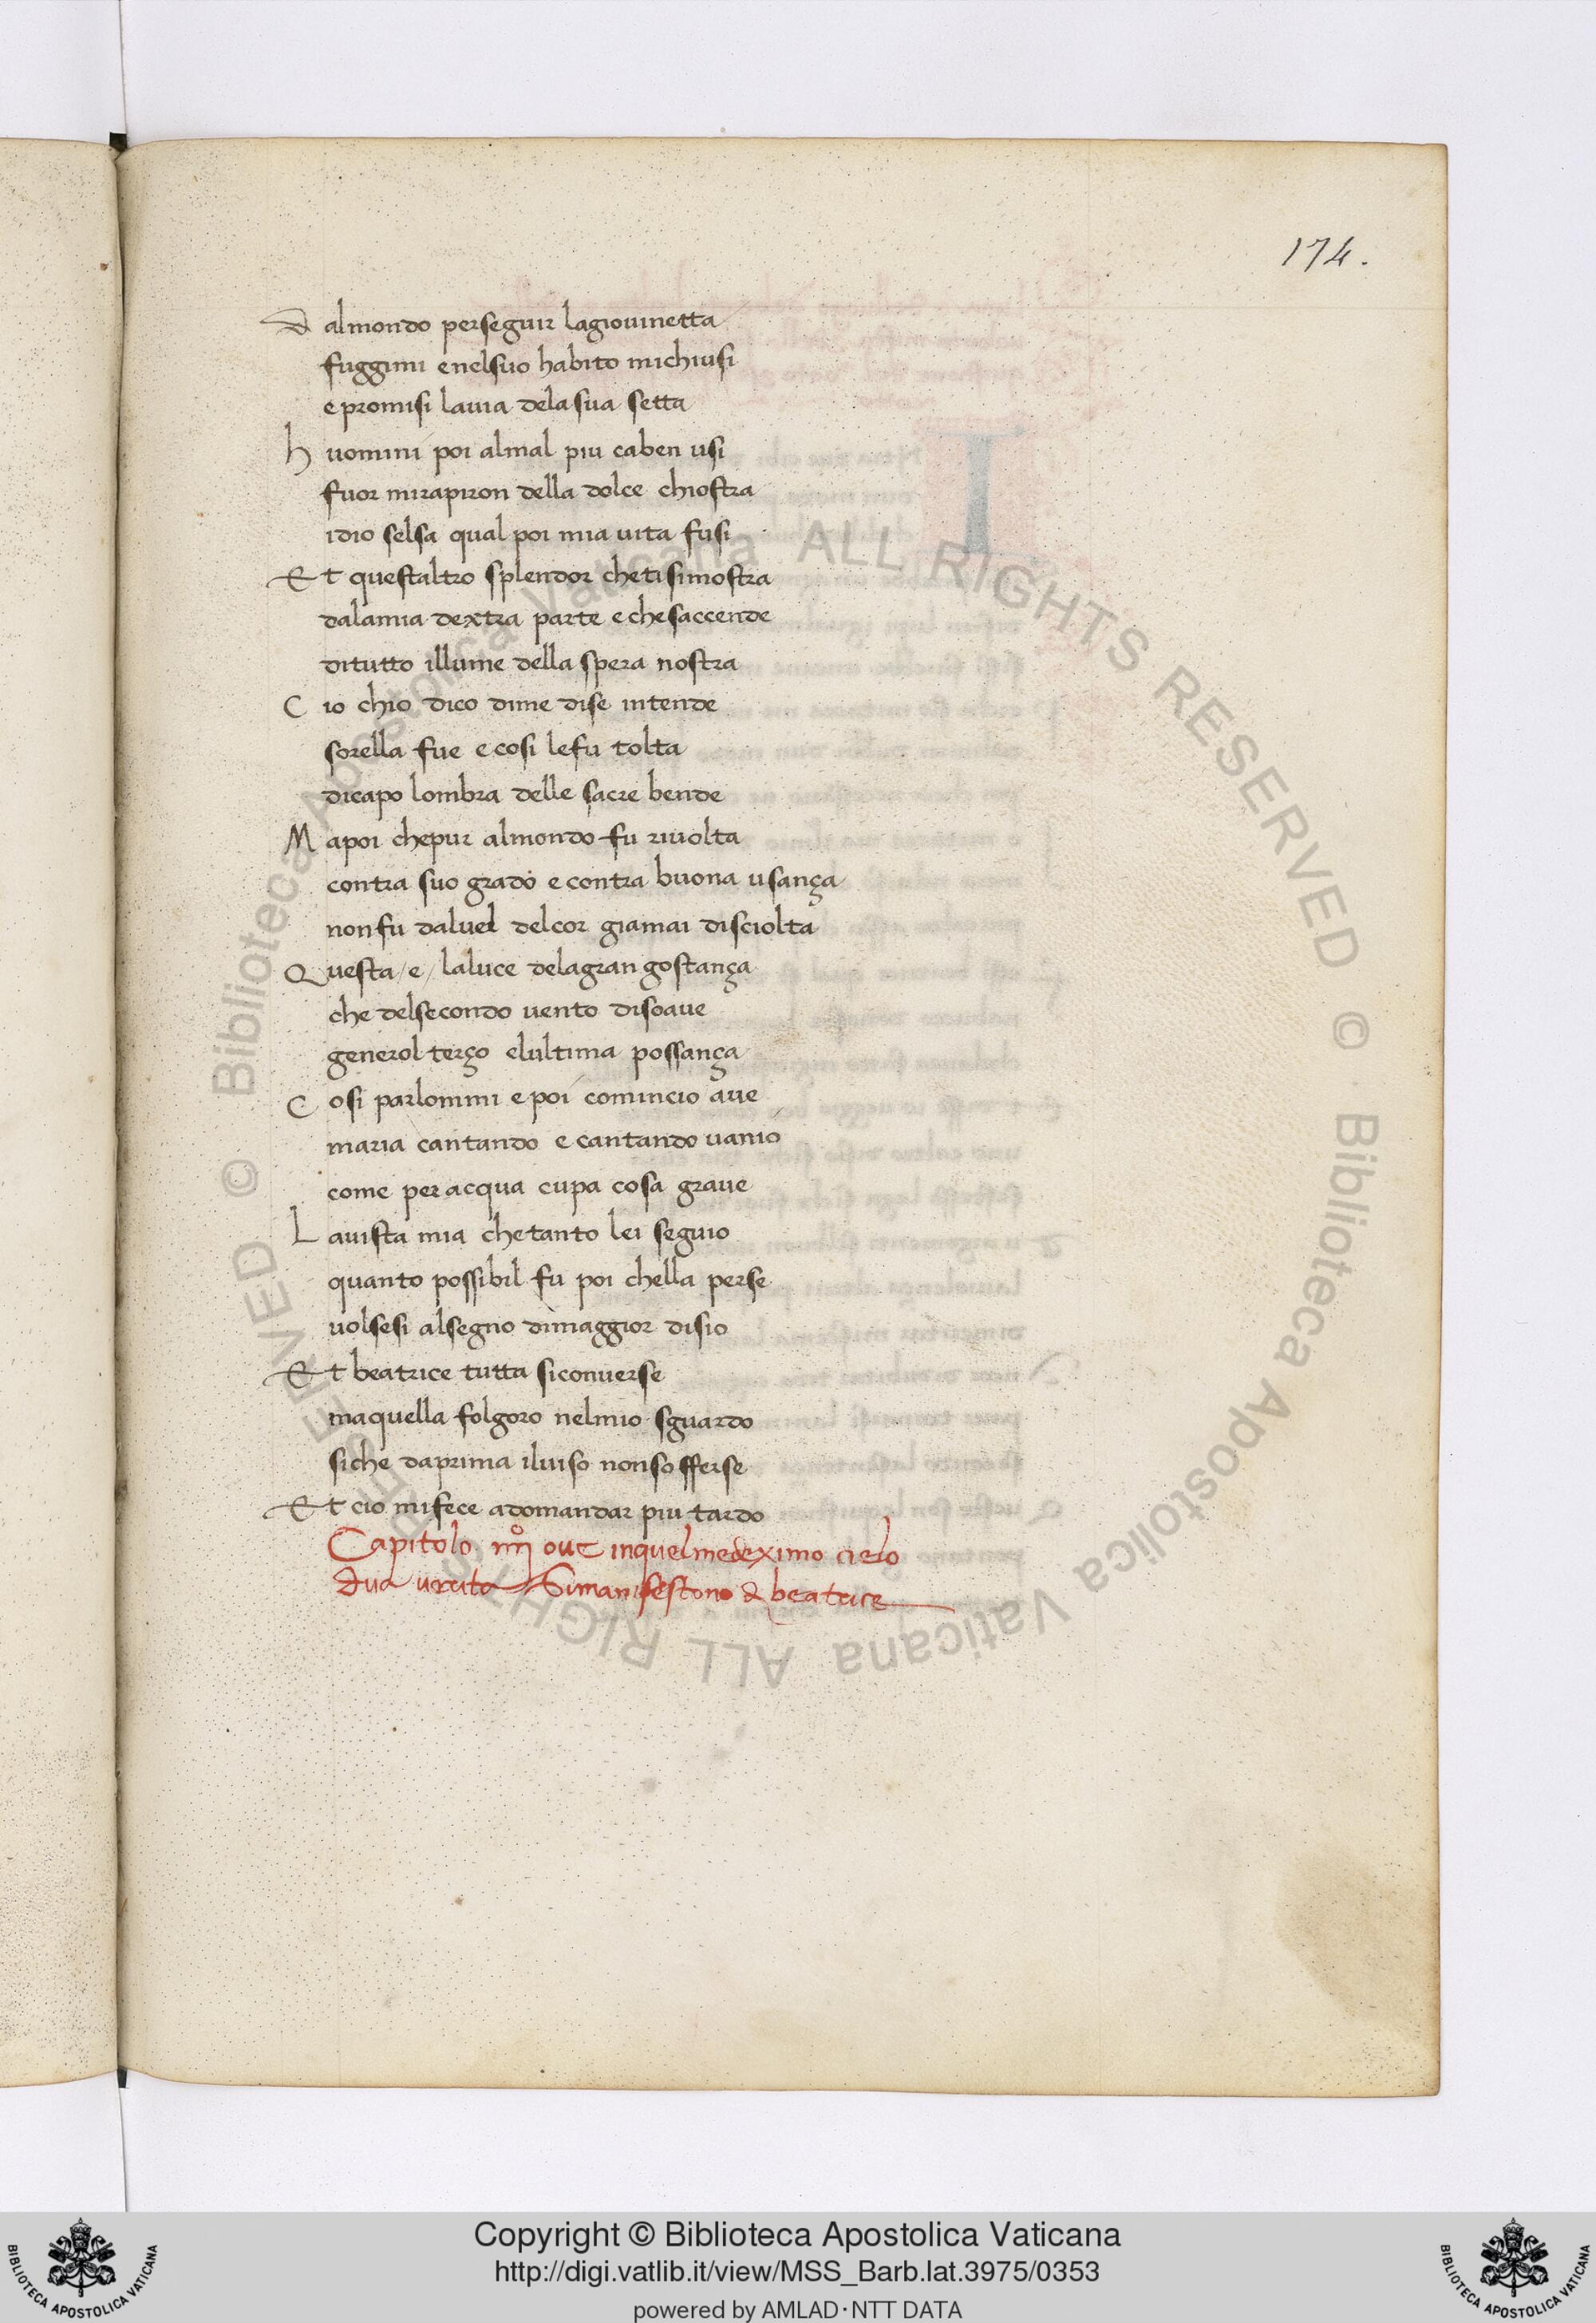 174.
D almondo perseguir lagiouinetta
fuggimi enelsuo habito michiusi
epromisi lauia delasua setta
h uomini poi almal piu caben usi
fuor mirapiron della dolce chiostra
idio selsa qual poi mia uita fusi
Et questaltro splendor chetisimostra
dalamia dextra parte echesaccende
ditutto illume della spera nostra
C io chio dico dime dise intende
sorella fue ecosi lefu tolta
dicapo lombra delle sacre bende
M apoi chepur almondo fu riuolta
contra suo grado econtra buona usança
nonfu daluel delcor giamai disciolta
Q uesta /e/ laluce delagran gostança
che delsecondo uento disoaue
generol terço elultima possança
C osi parlommi epoi comincio aue
maria cantando ecantando uanio
come peracqua cupa cosa graue
L auista mia chetanto lei seguio
quanto possibil fu poi chella perse
uolsesi alsegno dimaggior disio
Et beatrice tutta siconuerse
maquella folgoro nelmio sguardo
siche daprima iluiso nonsofferse
Et cio mifece adomandar piu tardo
Capitolo iiijº oue inquelmedeximo cielo
dua Simanifestono beatrice
© Biblioteca Apostolica Vaticana ALL RIGHTS RESERVED © Biblioteca Apostolica Vaticana ALL RIGHTS RESERVED
Copyright © Biblioteca Apostolica Vaticana
http://digi.vatlib.it/view/MSS_Barb.lat.3975/0353
powered by AMLAD·NTT DATA
BIBLIOTECA APOSTOLICA VATICANA
BIBLIOTECA APOSTOLICA VATICANA